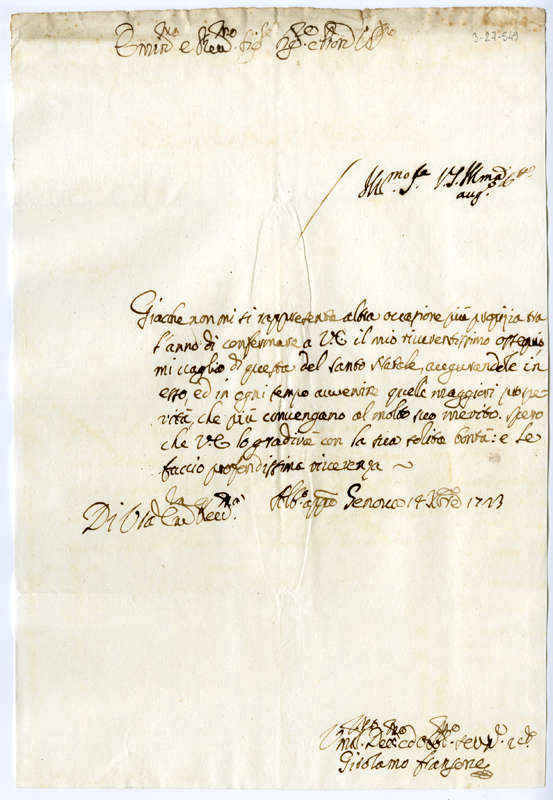 Emin.mo e Rev.mo Sig.re Sig.r e Pron Col.mo
3-27-549
Ill.mo S.re V.S. Ill.ma
aug.
Giache non mi si rappresenta altra occasione più propizia tra
l'anno di confermare a VE il mio riverentissimo ossequio
mi vaglio di questa del santo Natale, augurandole in
esso, ed in ogni tempo avvenire quelle maggiori prospe
rità, che più convengano al molto suo merito. Spero
che VE lo gradirà con la sua solita bontà: e le
faccio profondissima riverenza
Di V'ra Em.za Rev.ma
Genova 14 Xbre 1723
Umil. Dev. ed Obb. Ser.
Girolamo Fransone